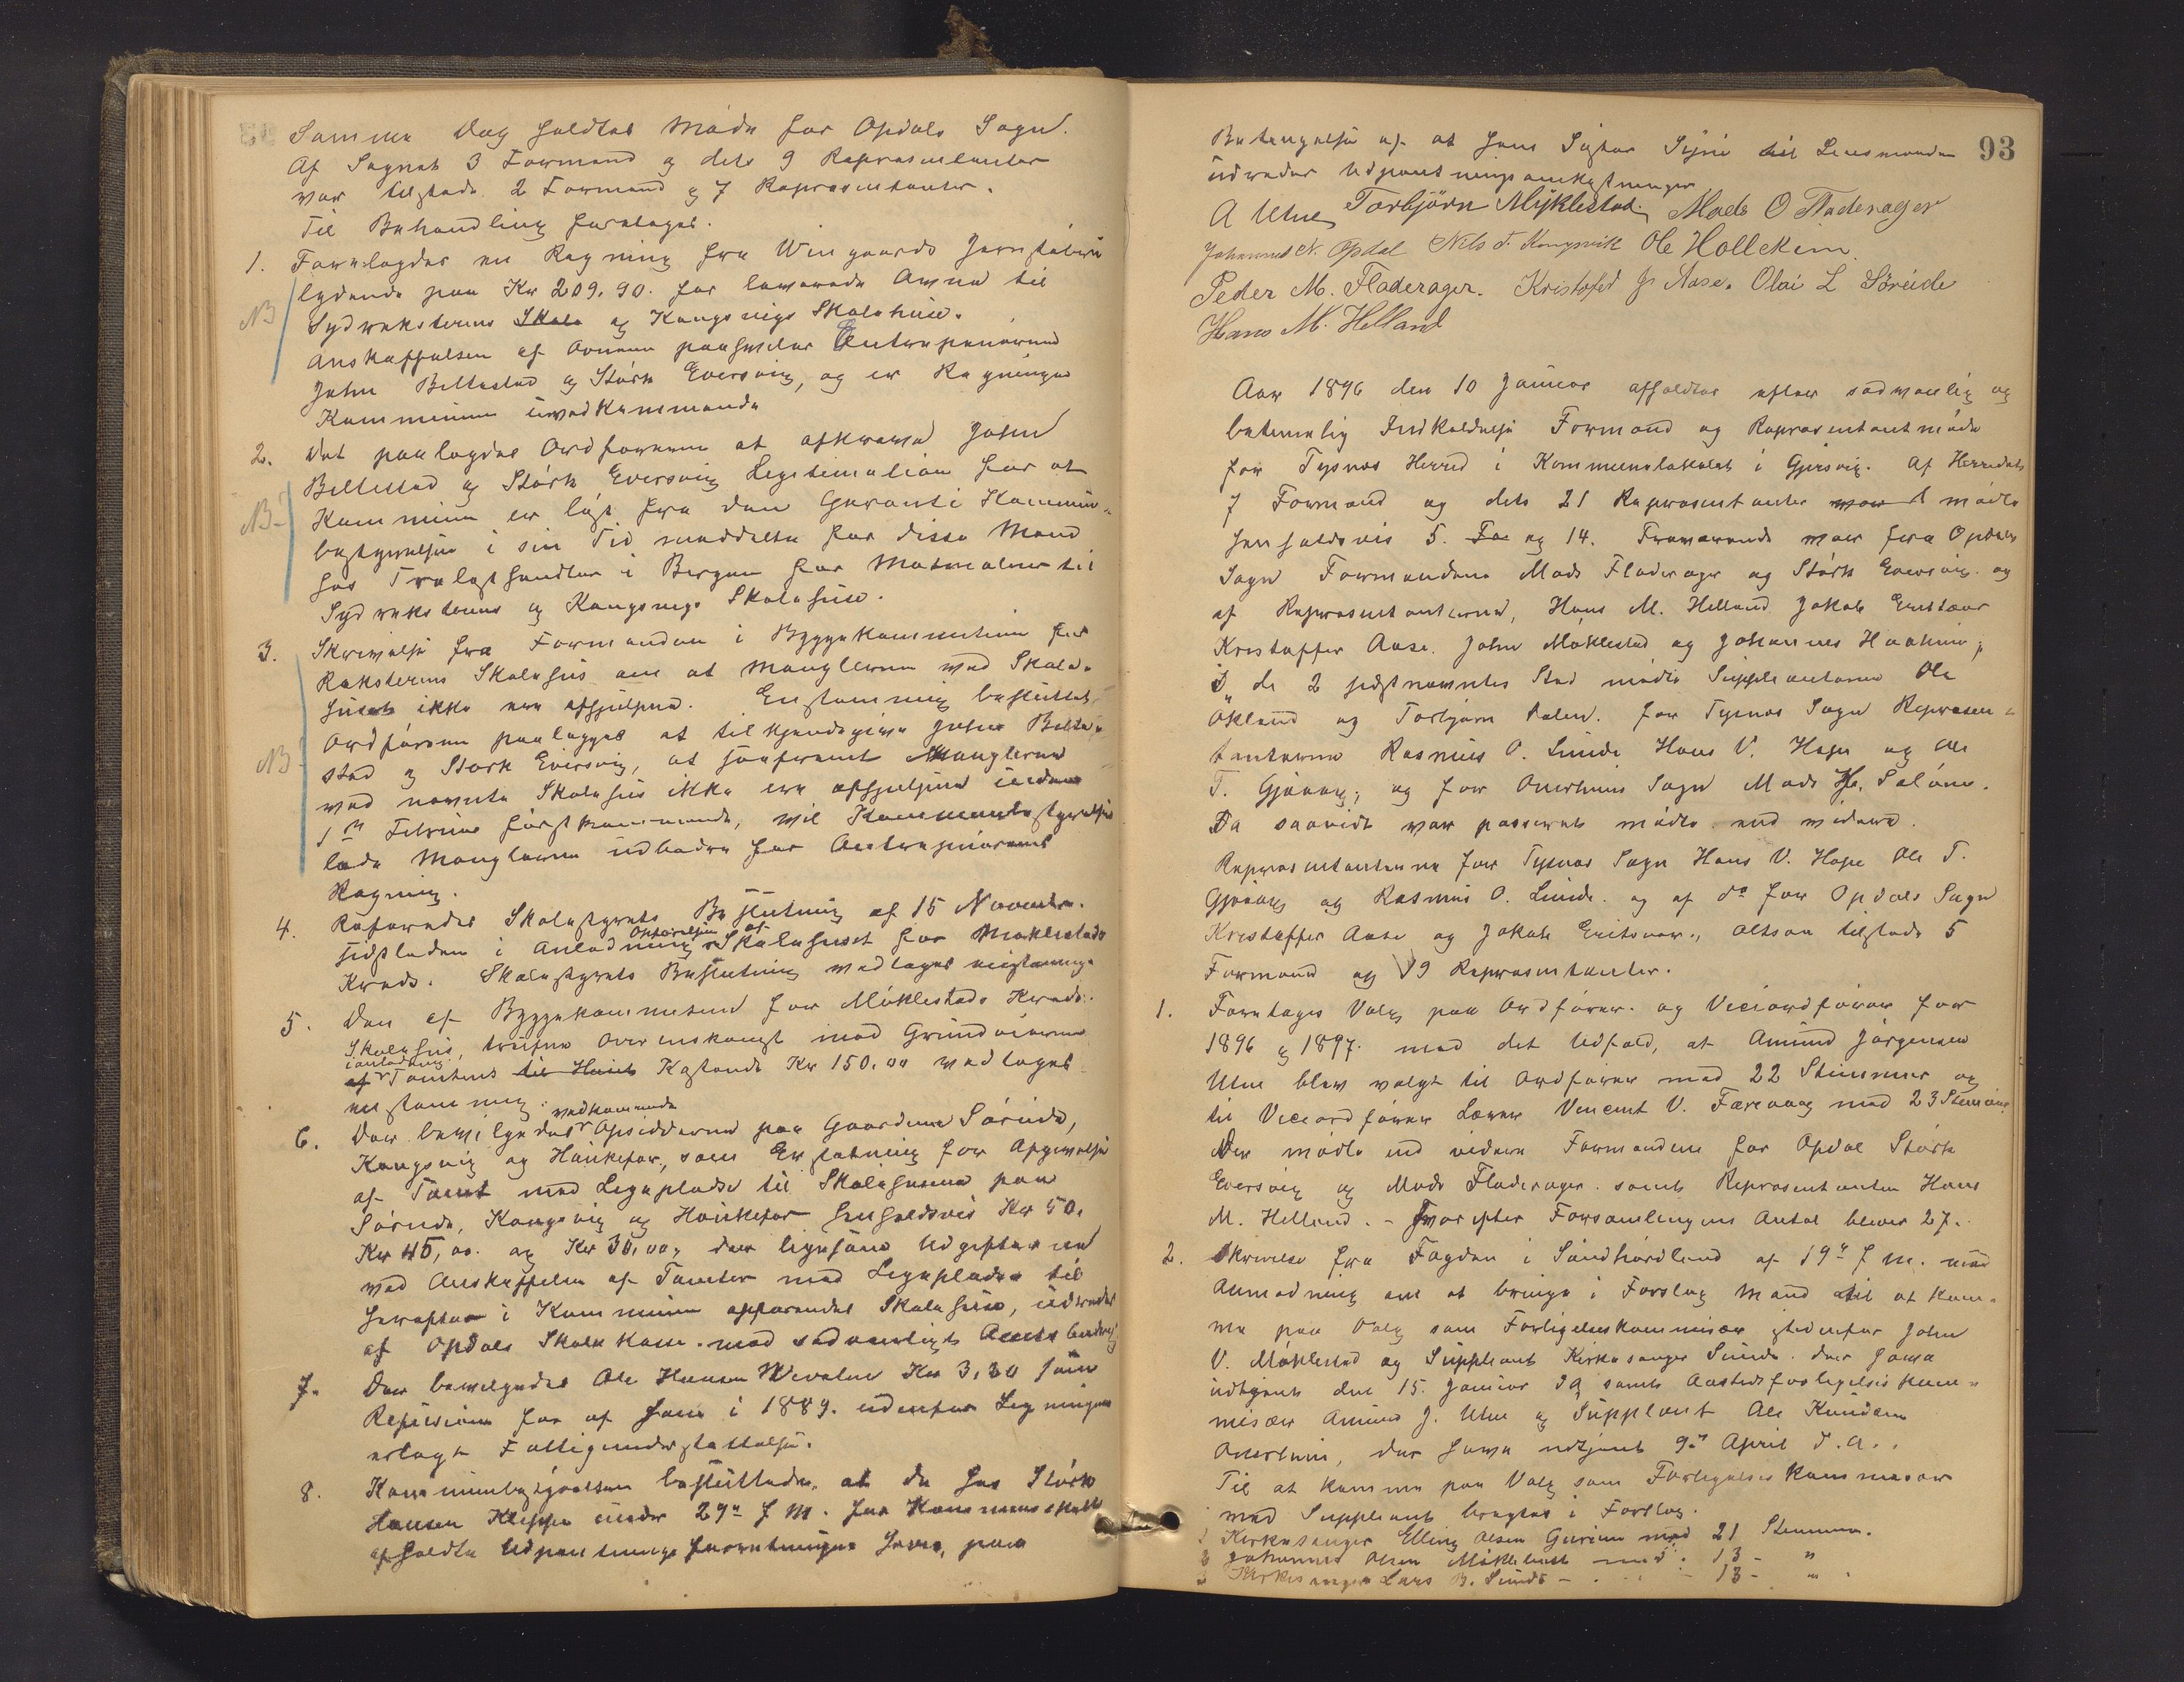 Samme Dag holdtes Møde for Opdals Sogn.
Af Sognets 3 Formænd og dets 9 Repræsentanter
var tilstede 2 Formænd og 7 Repræsentanter.
Til Behandling foretoges.
1. Forelagdes en Regning fra Wingaards Jernstøberi
lydende paa Kr 209,90. for leverede Ovne til
NB Sydreksterens Skole og Kongsvigs Skolehuse.
Anskaffelsen af Ovnene paahviler Entreprenørerne
John Beltestad og Størk Eversvig, og er Regningen
Kommunen uvedkommende
2. Det paalagdes Ordføreren at afkræve John
Beltestad og Størk Eversvig Legitimation for at
NB- Kommunen er løst fra den Garanti Kommune-
bestyrelsen i sin Tid meddelte for disse Mænd
hos Trælasthandler i Bergen for Materialier til
Sydreksterens og Kongsvigs Skolehuse.
3. Skrivelse fra Formanden i Byggekommiteen for
Reksterens Skolehus om at Manglerne ved Skole-
huset ikke ere afhjulpne. Enstemmig besluttet
Ordføreren paalægges at tilkjendegive John Belte-
NB- stad og Størk Eversvig, at saafremt Manglerne
ved nævnte Skolehus ikke ere afhjulpne inden
1ste Februar førstkommende, vil Kommunebestyrelsen
lade Manglerne udbedre for Entreprenørernes
Regning.
4. Refereredes Skolestyrets Beslutning af 15 November
sidstleden i Anledning Opførelsen af Skolehuset for Møklestads
Kreds. Skolestyrets Beslutning vedtoges enstemmig.
5. Den af Byggekommiteen for Møklestads Kreds.
Skolehus, trufne Overenskomst med Grundeierne
i anledning af Tomtens til Huset Kostende Kr 150,00 vedtoges
enstemmig.
6. Der bevilgedes vedkommende Opsidderne paa Gaardene Søreide,
Kongsvig og Haukefær, som Erstatning for Afgivelse
af Tomt med Legeplads til Skolehusene paa
Søreide, Kongsvig og Haukefær henholdsvis Kr 50.
Kr 45,00. og Kr 30,00, der ligesom Udgifterne
ved Anskaffelse af Tomter med Legeplads til
herefter i Kommunen opførendes Skolehuse, udredes
af Opdals Skolekasse. med sædvanligt Amtsbidrag
7. Der bevilgedes Ole Hansen Wevatne Kr 3,20 som
Refusion for af ham i 1889. udenfor Ligningen
erlagt Fattigunderstøttelse.
8. Kommunebestyrelsen besluttede, at de hos Størk
Hansen Kleppe under 29de f. M. for Kommuneskatt
afholdte Udpantningsforretninger hæves, paa
93
Betingelse af at Hans Sigtor Seini til Lensmanden
udreder Udpantningsomkostninger
A Utne Torbjørn Myklestad. Mads O Fladerager
Johannes N. Opdal Nils T. Kongsvik Ole Hollekim.
Peder M. Fladerager. Kristofer J. Aase. Olai L Søreide
Hans M. Helland
Aar 1896 den 10 Januar afholdtes efter sædvanlig og
betimelig Indkaldelse Formænd og Repræsentantmøde
for Tysnes Herred i Kommunelokalet i Gjersvig. Af Herredets
7 Formænd og dets 21 Repræsentanter var d mødte
henholdsvis 5. Fo og 14. Fraværende var fra Opdals
Sogn Formændene Mads Fladerager og Størk Eversvig og
af Repræsentanterne, Hans M. Helland Jakob Enitsner
Kristoffer Aase. John Møklestad og Johannes Haaheim,
I de 2 sidstnævntes Sted mødte Suppleanterne Ole
Økland og Torbjørn Dalen. for Tysnes Sogn Repræsen-
tanterne Rasmus O. Lunde Hans V. Hope og Ole
T. Gjøvaag, og for Onarheims Sogn Mads H. Saløen.
Da saavidt var passeret mødte end videre.
Repræsentanterne for Tysnes Sogn Hans V. Hope Ole T.
Gjøvaag og Rasmus O. Lunde. og af do for Opdals Sogn
Kristoffer Aase og Jakob Enitsner., altsaa tilstede 5
Formænd og 19 Repræsentanter.
1. Foretoges Valg paa Ordfører. og Viceordfører for
1896 og 1897. med det Udfald, at Amund Jørgensen
Utne blev valgt til Ordfører med 22 Stemmer og
til Viceordfører Lærer Vincent V. Færevaag med 23 Stemmer
Der mødte end videre Formændene for Opdal Størk
Eversvig og Mads Fladerager. samt Repræsentanten Hans
M. Helland. - Hvorefter Forsamlingens Antal bliver 27.
2. Skrivelse fra Fogden i Søndhordland af 19de f m. med
Anmodning om at bringe i Forslag Mænd til at kom-
me paa Valg som Forligelseskommisær istedenfor John
V. Møklestad og Suppleant Kirkesanger Lunde. der have
udtjent den 15. Januar d a, samt Aastedsforligelseskom-
misær Amund J. Utne og Suppleant Ole Knudsen
Onarheim, der have udtjent 9de April d. a..
Til at komme paa Valg som Forligelseskommisær
med Suppleant bragtes i Forslag.
1 Kirkesanger Elling Olsen Gurine med 21 Stemmer.
2 Johannes Olsen Møklestad med. 13 - "
3 Kirkesanger Lars B. Lunde - . . - 13 - " .